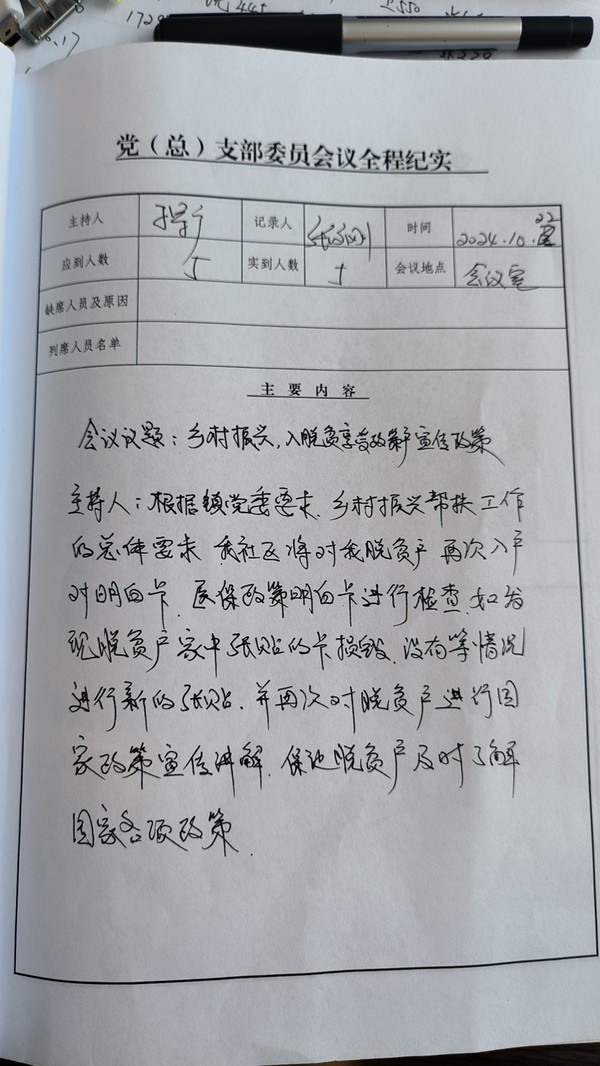 党（总）支部委员会议全程纪实
主持人 记录人 时间 2024.10.22
应到人数 5 实到人数 5 会议地点 会议室
缺席人员及原因
列席人员名单
主要内容
会议议题：乡村振兴，入脱贫享受政策户宣传政策
主持人：根据镇党委要求.乡村振兴帮扶工作
的总体要求 我社区将对我脱贫户再次入户
对明白卡.医保政策明白卡进行检查.如发
现脱贫户家中张贴的卡损毁.没有等情况
进行新的张贴.并再次对脱贫户进行国
家政策宣传讲解.保 脱贫户及时了解
国家各项政策.